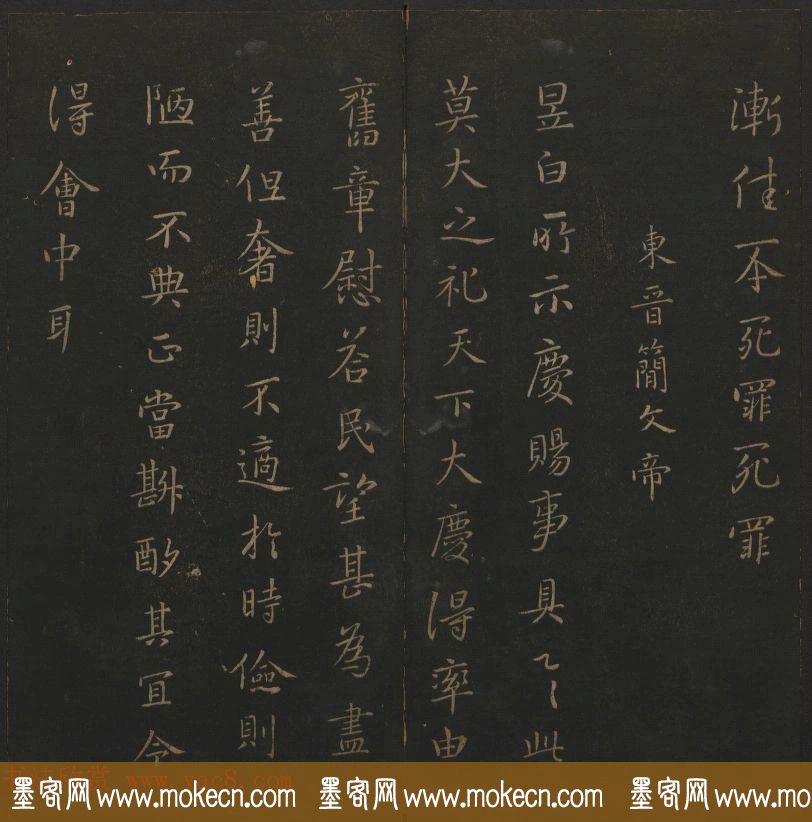 漸佳死罪死罪
東晉簡文帝
昱白所示慶賜事具此
莫大之祀天下大慶得率由
舊章慰荅民望甚為盡
善但奢則不適於時儉則
陋而不典正當斟酌其宜令
得會中耳
书法欣赏 www.yac8.com
墨客网www.mokecn.com 墨客网www.mokecn.com 墨客网www.mokecn.com